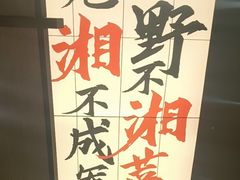 野不湘菜
湘不成